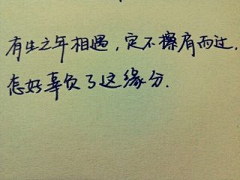 有生之年相遇，定不擦肩而过.
怎好辜负了这缘分.